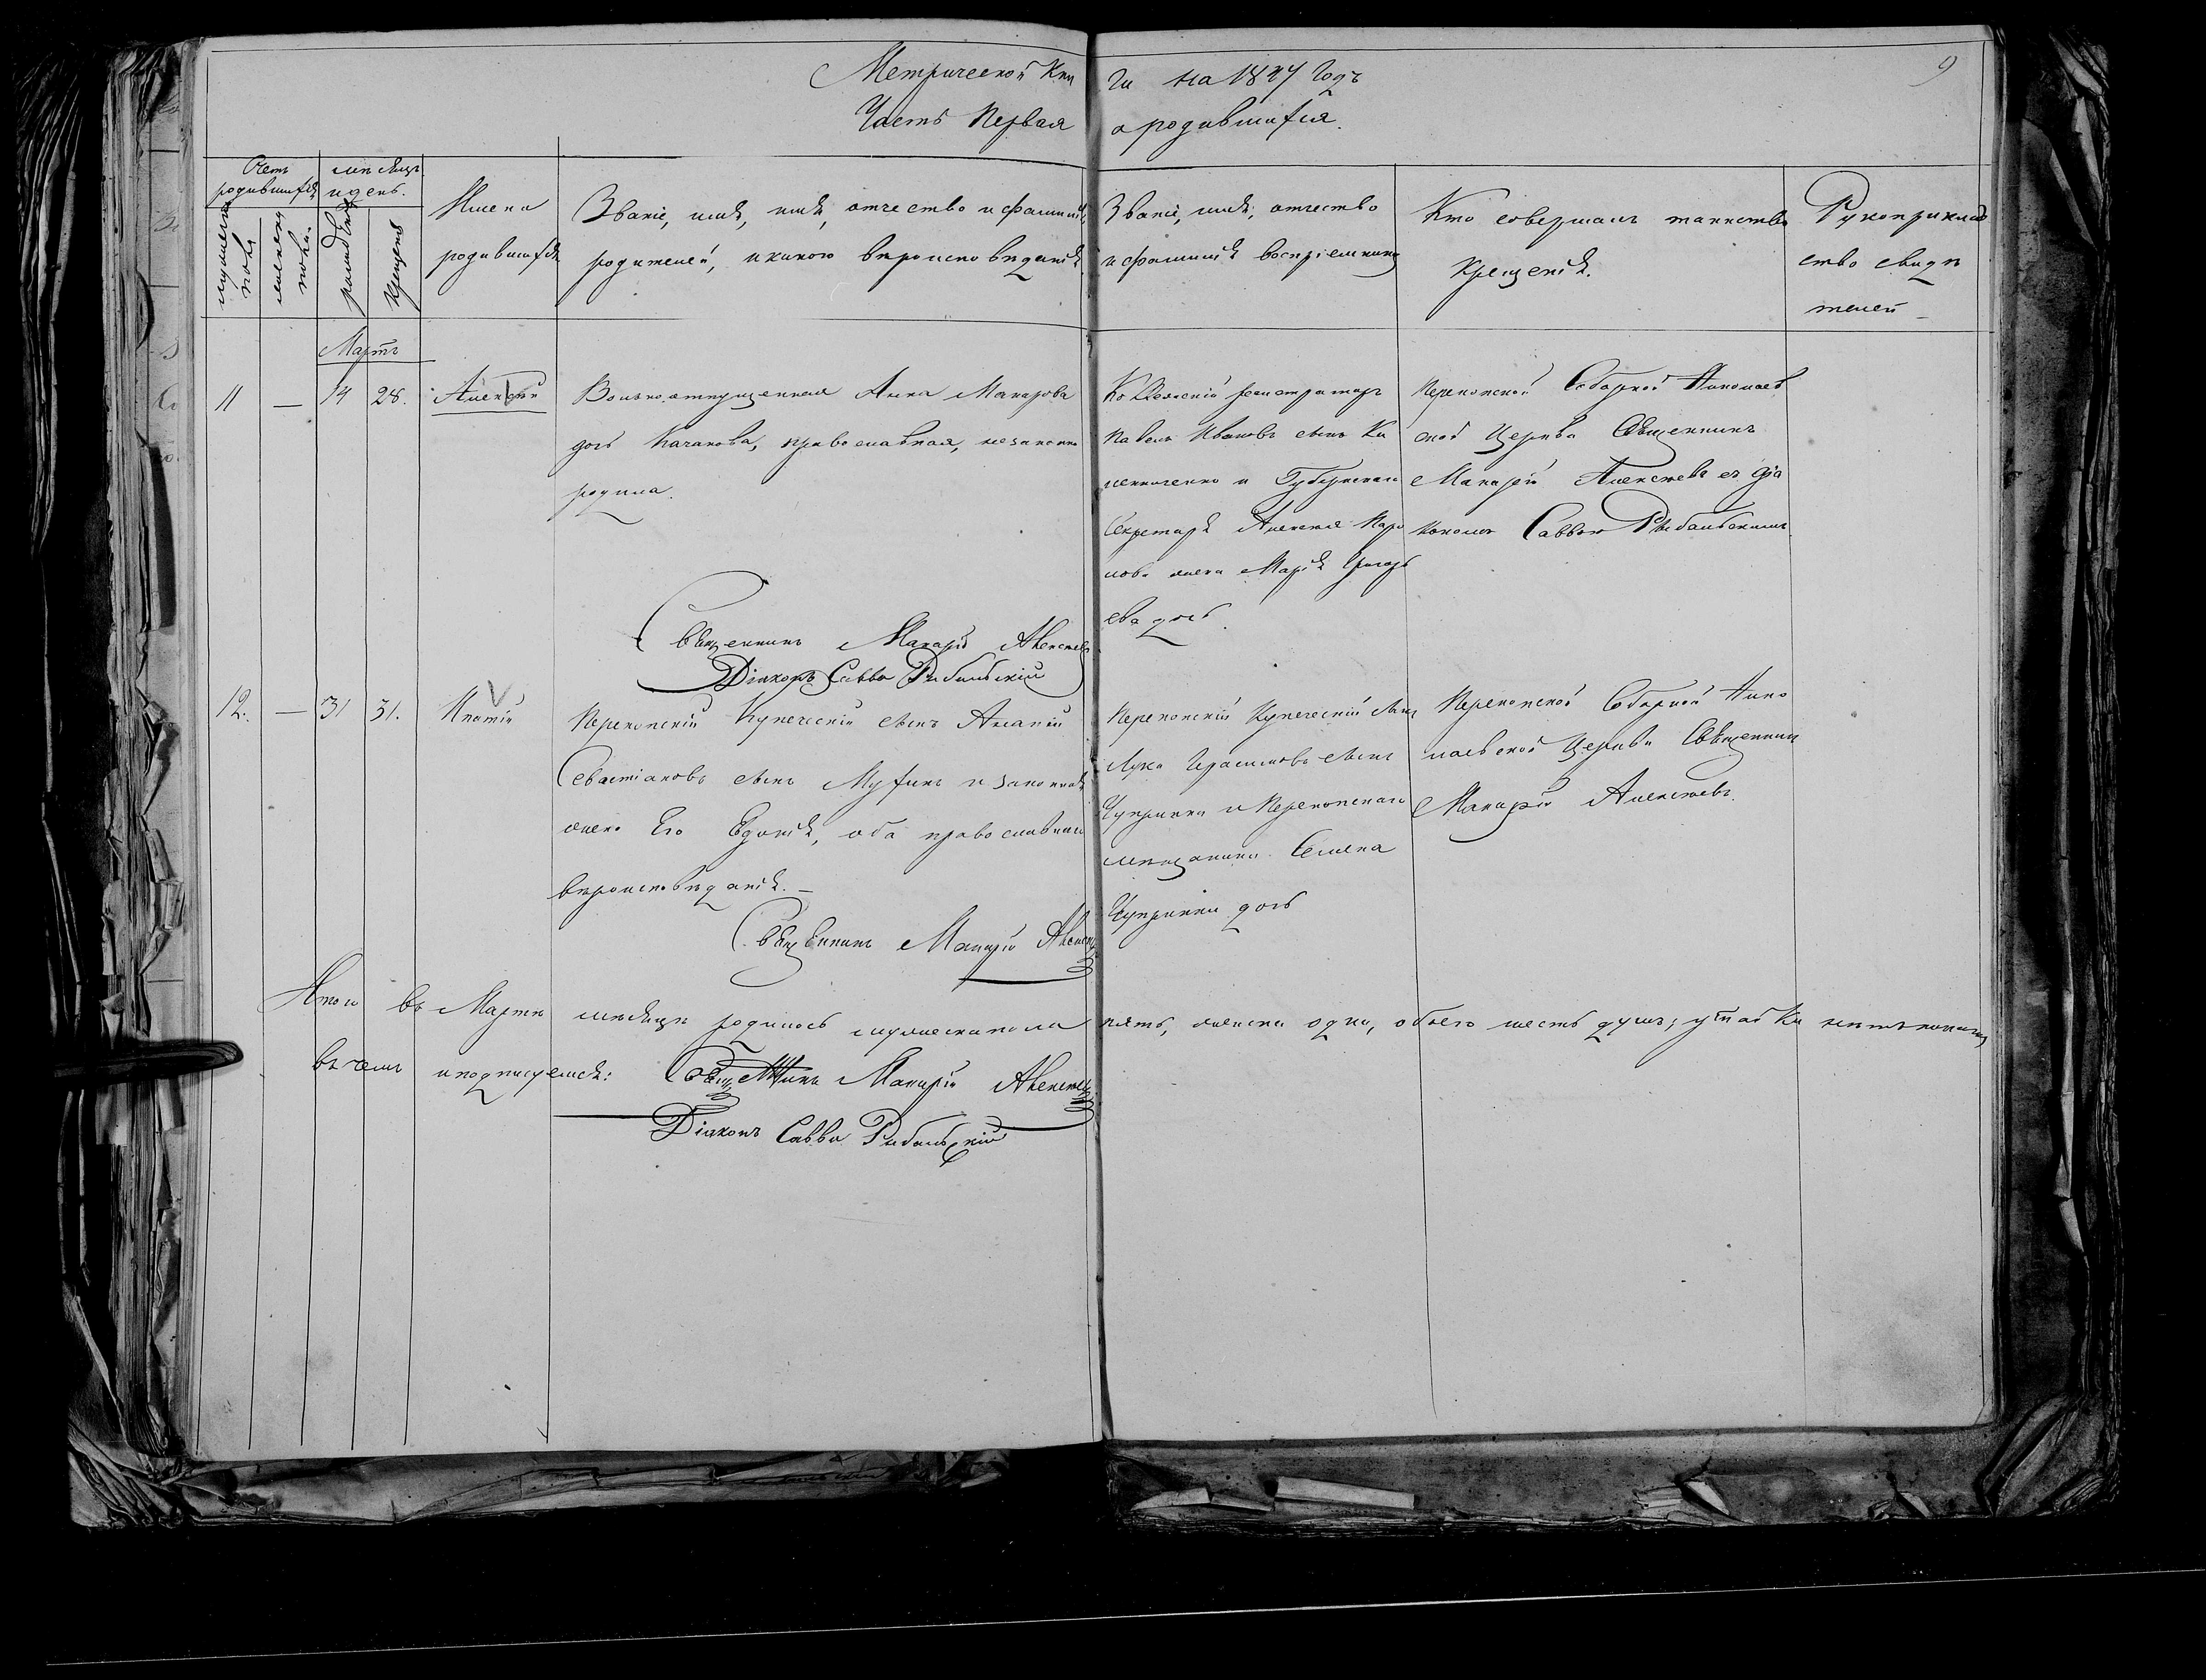 Метрической Книги на 1847 Годъ
Часть Первая о родившихся.
9
Счетъ родившихся
мѣсяцъ и день.
мужеска пола
женска пола.
рожденія
Крещенія
Имена родившихся
Званіе, имя, имя, отчество и фамилія,
родителей, и какого вѣроисповѣданія.
Званіе, имя, отчество
и фамилія воспріемниковъ
Кто совершалъ таинство
Крещенія.
Рукоприклад
ство свидѣ
телей
Мартъ
11 — 14 28. Алексѣй
Вольноотпущенная Анна Макарова
дочь Качанова, православная, незаконно
родила.
Коллежскій регистраторъ
Павелъ Ивановъ сынъ
и Губернскаго
Секретаря Алексѣя
жена Марія Григорь
ева дочь.
Перекопской Соборной Николаев
ской Церкви Священникъ
Макарій Алексѣевъ съ Діа
кономъ Саввою Рыбальскимъ
Священникъ Макарій Алексѣевъ
Діаконъ Савва Рибальскій
12. — 31 31. Ипатій
Перекопскій Купеческій сынъ
Севастіановъ сынъ и законная
жена Его Евдокія, оба православнаго
вѣроисповѣданія. —
Перекопскій Купеческій сынъ
Лука Герасимовъ сынъ
Чупринка и Перекопскаго
мѣщанина Семена
Чупринки дочь
Перекопской Соборной Нико
лаевской Церкви Священникъ
Макарій Алексѣевъ.
Священникъ Макарій Алексѣевъ
Итого въ Мартѣ мѣсяцѣ родилось мужеска пола пять, женска одна, обоего шесть душъ;
въ чемъ и подписуемся: Священникъ Макарій Алексѣевъ
Діаконъ Савва Рибальскій